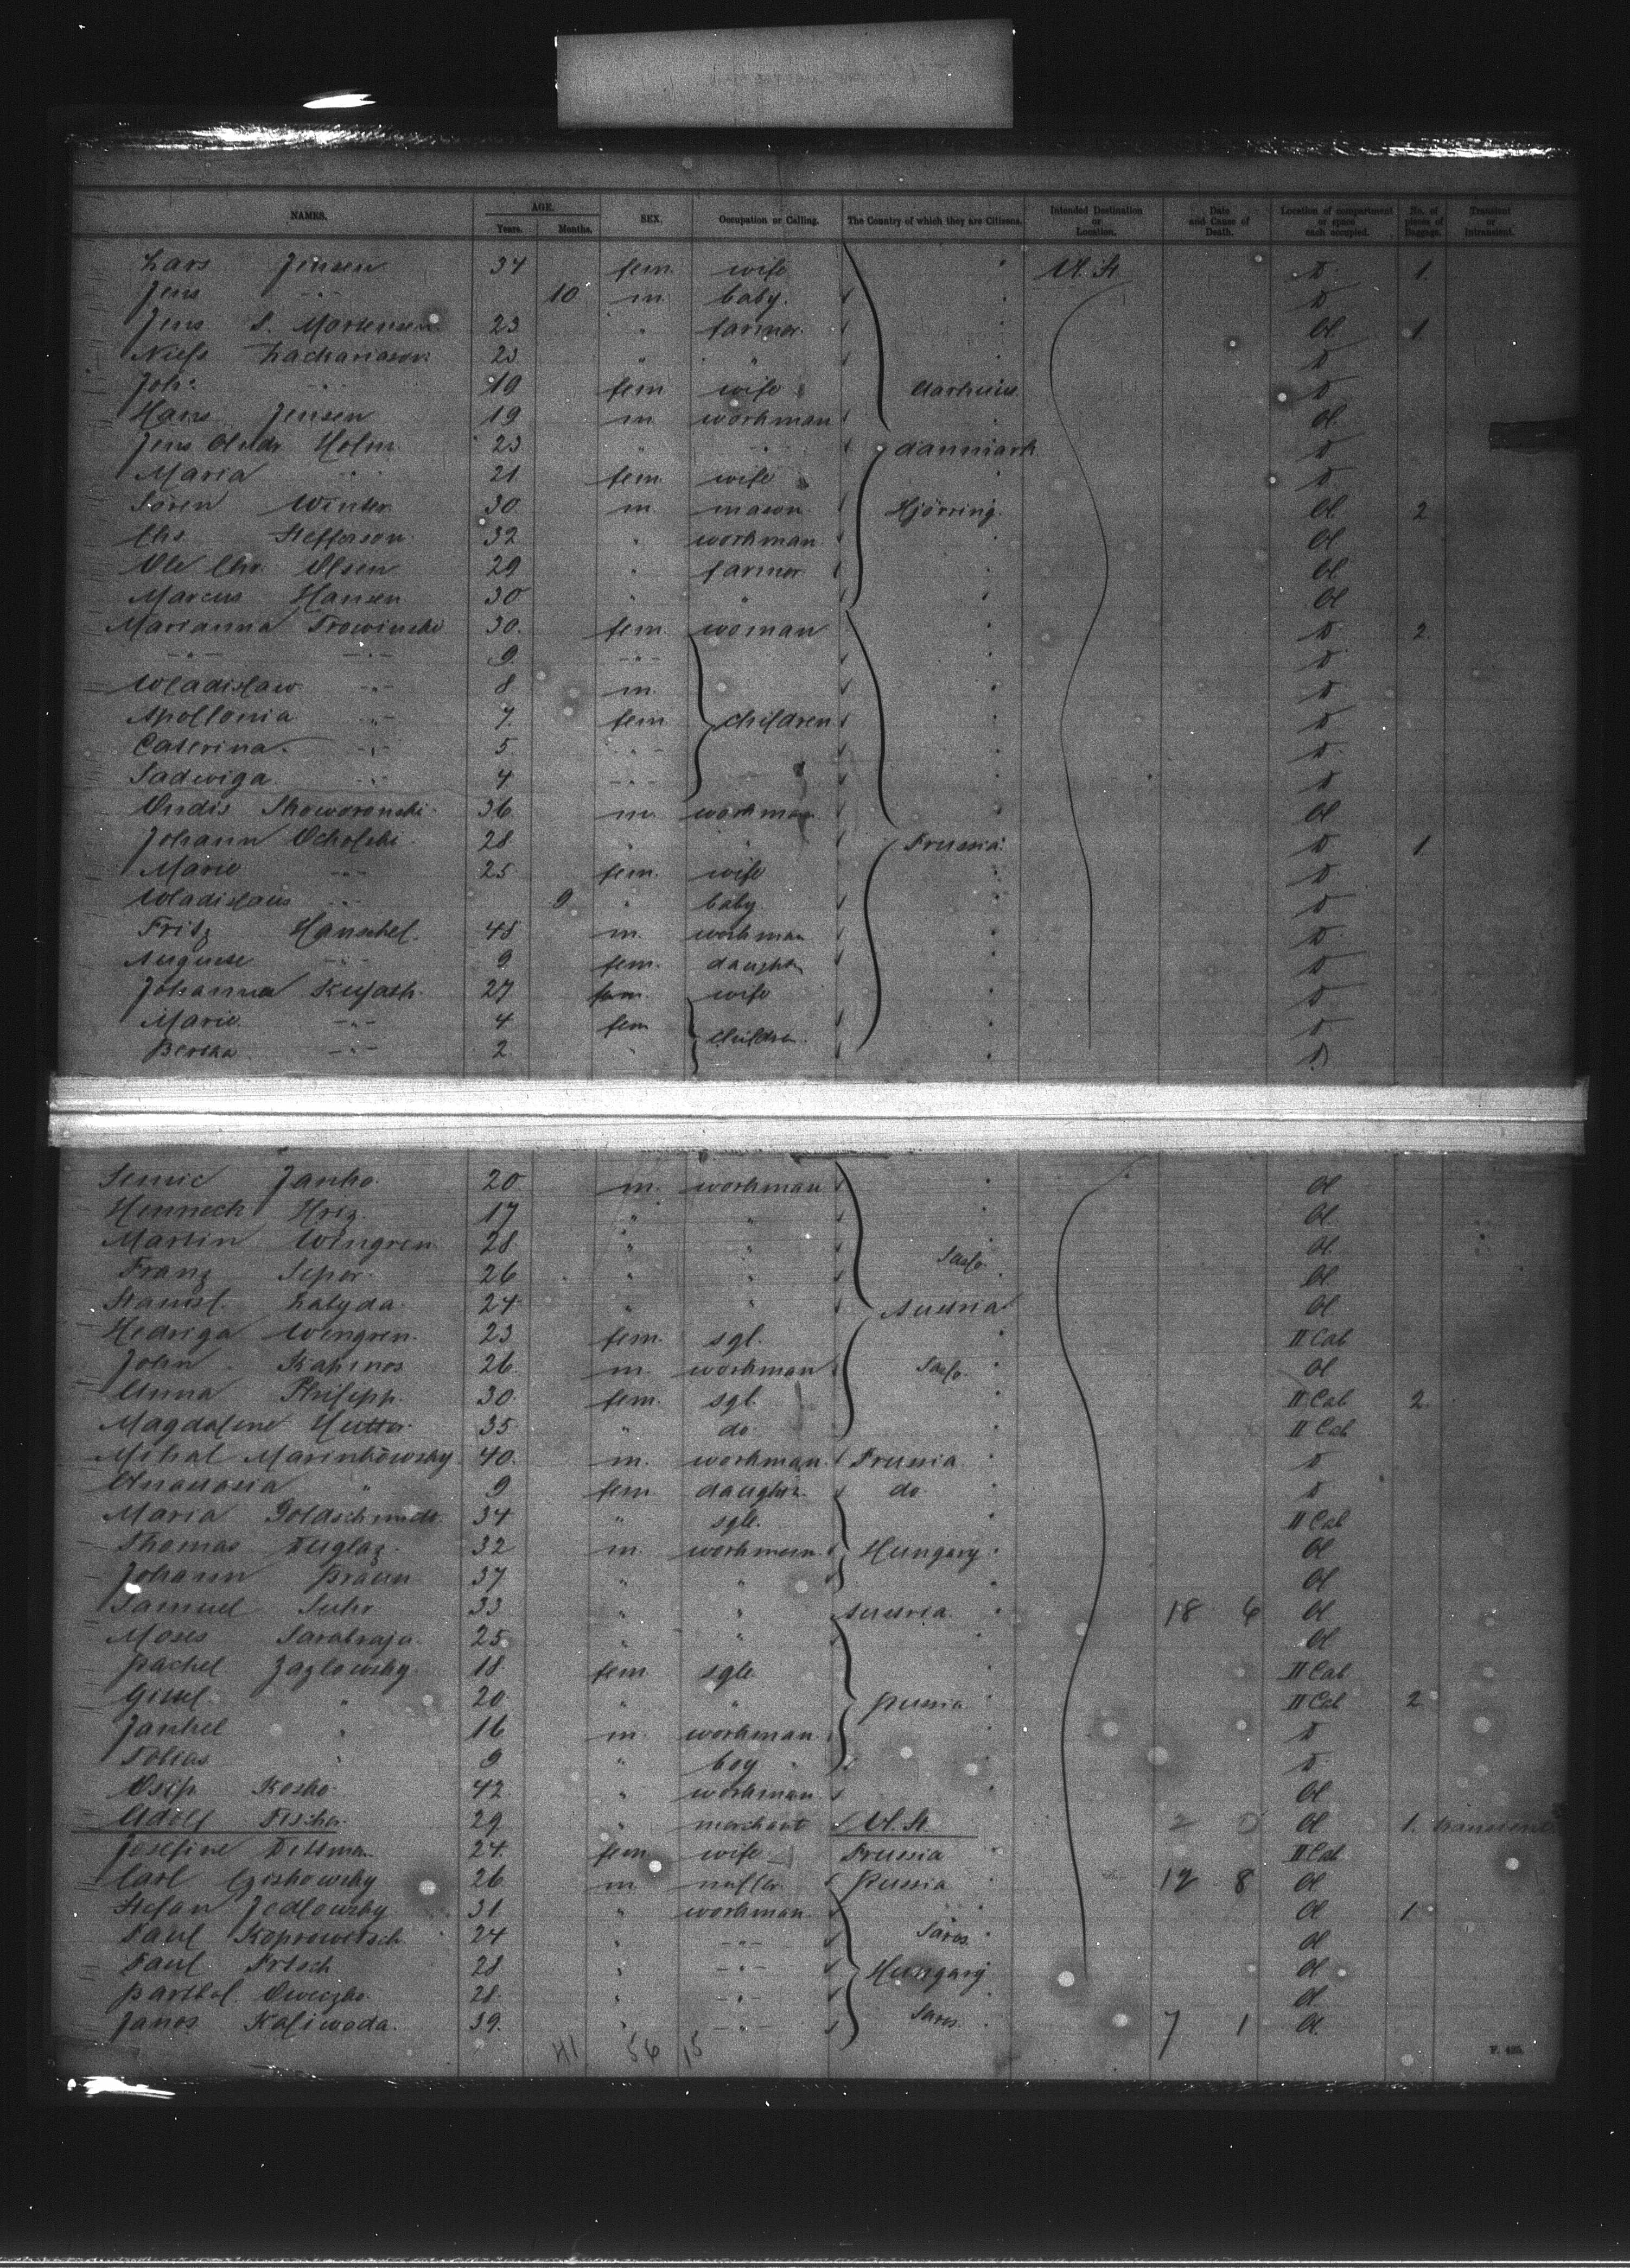 NAMES. AGE. SEX. Occupation or Calling. The Country of which they are Citizens. Intended Destination or Location. Date and Cause of Death. Location of compartment or space each occupied. No. of pieces of Baggage. Transient or Intransient.
Years. Months.
Lars Jensen 34 fem. wife U. St. D. 1.
Jens -"- 10 m. baby. D
Jens S. Mortensen 23 " farmer. A. 1
Niels Zachariason 23 " " D
Joh: -"- 19 fem wife Aarhuus D
Hans Jensen 19 m workman A.
Jens Holm 23 " -"- Danmark D
Maria -"- 21 fem. wife D.
Sören Winter 30 m mason Hjörring. A. 2
Chs. Steffenson 32 " workman A
Ole Chr. Olsen 29 " farmer A
Marcus Hansen 30 " " A
Marianna Trowinski 30. fem. woman D. 2.
-"- -"- 9 -"- D
Wladislaw -"- 8 m. D
Apollonia -"- 7. fem children D
Caterina -"- 5 -"- D.
Sadwiga -"- 4 -"- D
Skoworonski 36 m. workman A
Johann Ocholski 28 " " Prussia. D 1
Marie -"- 25 fem. wife D.
Wladislaus -"- 9 " baby. D
Fritz Hanschel. 45 m. workman D.
Auguste -"- 9 fem. daughter D
Johanna Kujath. 27 fem. wife D
Marie -"- 4 fem children. D
Bertha -"- 2 " D
Janko. 20 m. workman A
Henneck Hriz. 17 " " A
Martin Wengren 28 " " A.
Franz 26 " " A
Stanisl. Zabyda. 24 " " Austria A
Hedwiga Wengren. 23 fem. sgl. II Cab
John Kapinos 26 m. workman A
Anna Philipp. 30. fem. sgl. II Cab 2.
Magdalene Hutter. 35 " do. II Cab
Mihal Marinkowsky 40. m. workman. Prussia D
Anastasia " 9 fem daughter do D
Maria Goldschmidt. 34 " sgle. II Cab
Thomas Duglaz. 32 m. workman. Hungary A
Johann Braun 37 " " A
Samuel Suhr 33 " " Austria. 18 6 A
Moses 25 " " A
Rachel Jaglowsky. 18 fem sgle. II Cab
Gissel " 20 " " Russia II Cab 2
Jankel " 16 m. workman. D
Tobias " 9 " boy D
Osip Kosko 42 " workman. A
Adolf Fischer 29 " merchant U. St. 2 0 A 1. transient
Josefine Dittman 24. fem wife Prussia II Cab
Carl 26 m. miller. Russia 12 8 A
Stefan Jedlowsky 31 " workman. A 1
Paul Koprowitsch 24 " -"- Saros A
Paul Frtsch 28 " -"- Hungary A
28 " -"- A
Janos Kaliwoda. 39. " -"- Saros 7 1 A.
41 56 15
F. 435.